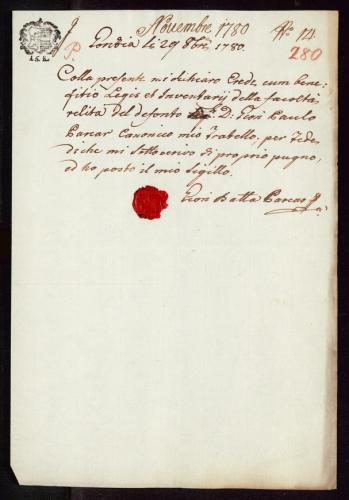 Novembre 1780 N.º 14
280
P. Gondia Li 29 9bre, 1780.
Colla presente mi dichiaro Erede, cum bene=
=fitio Legis et Inventarij della facoltà
relita del defonto D: Gion Paulo
Parcar Canonico mio fratello, per fede
di che mi sottoscrivo di proprio pugno,
ed ho posto il mio sigillo.
Gion Batta Parcar